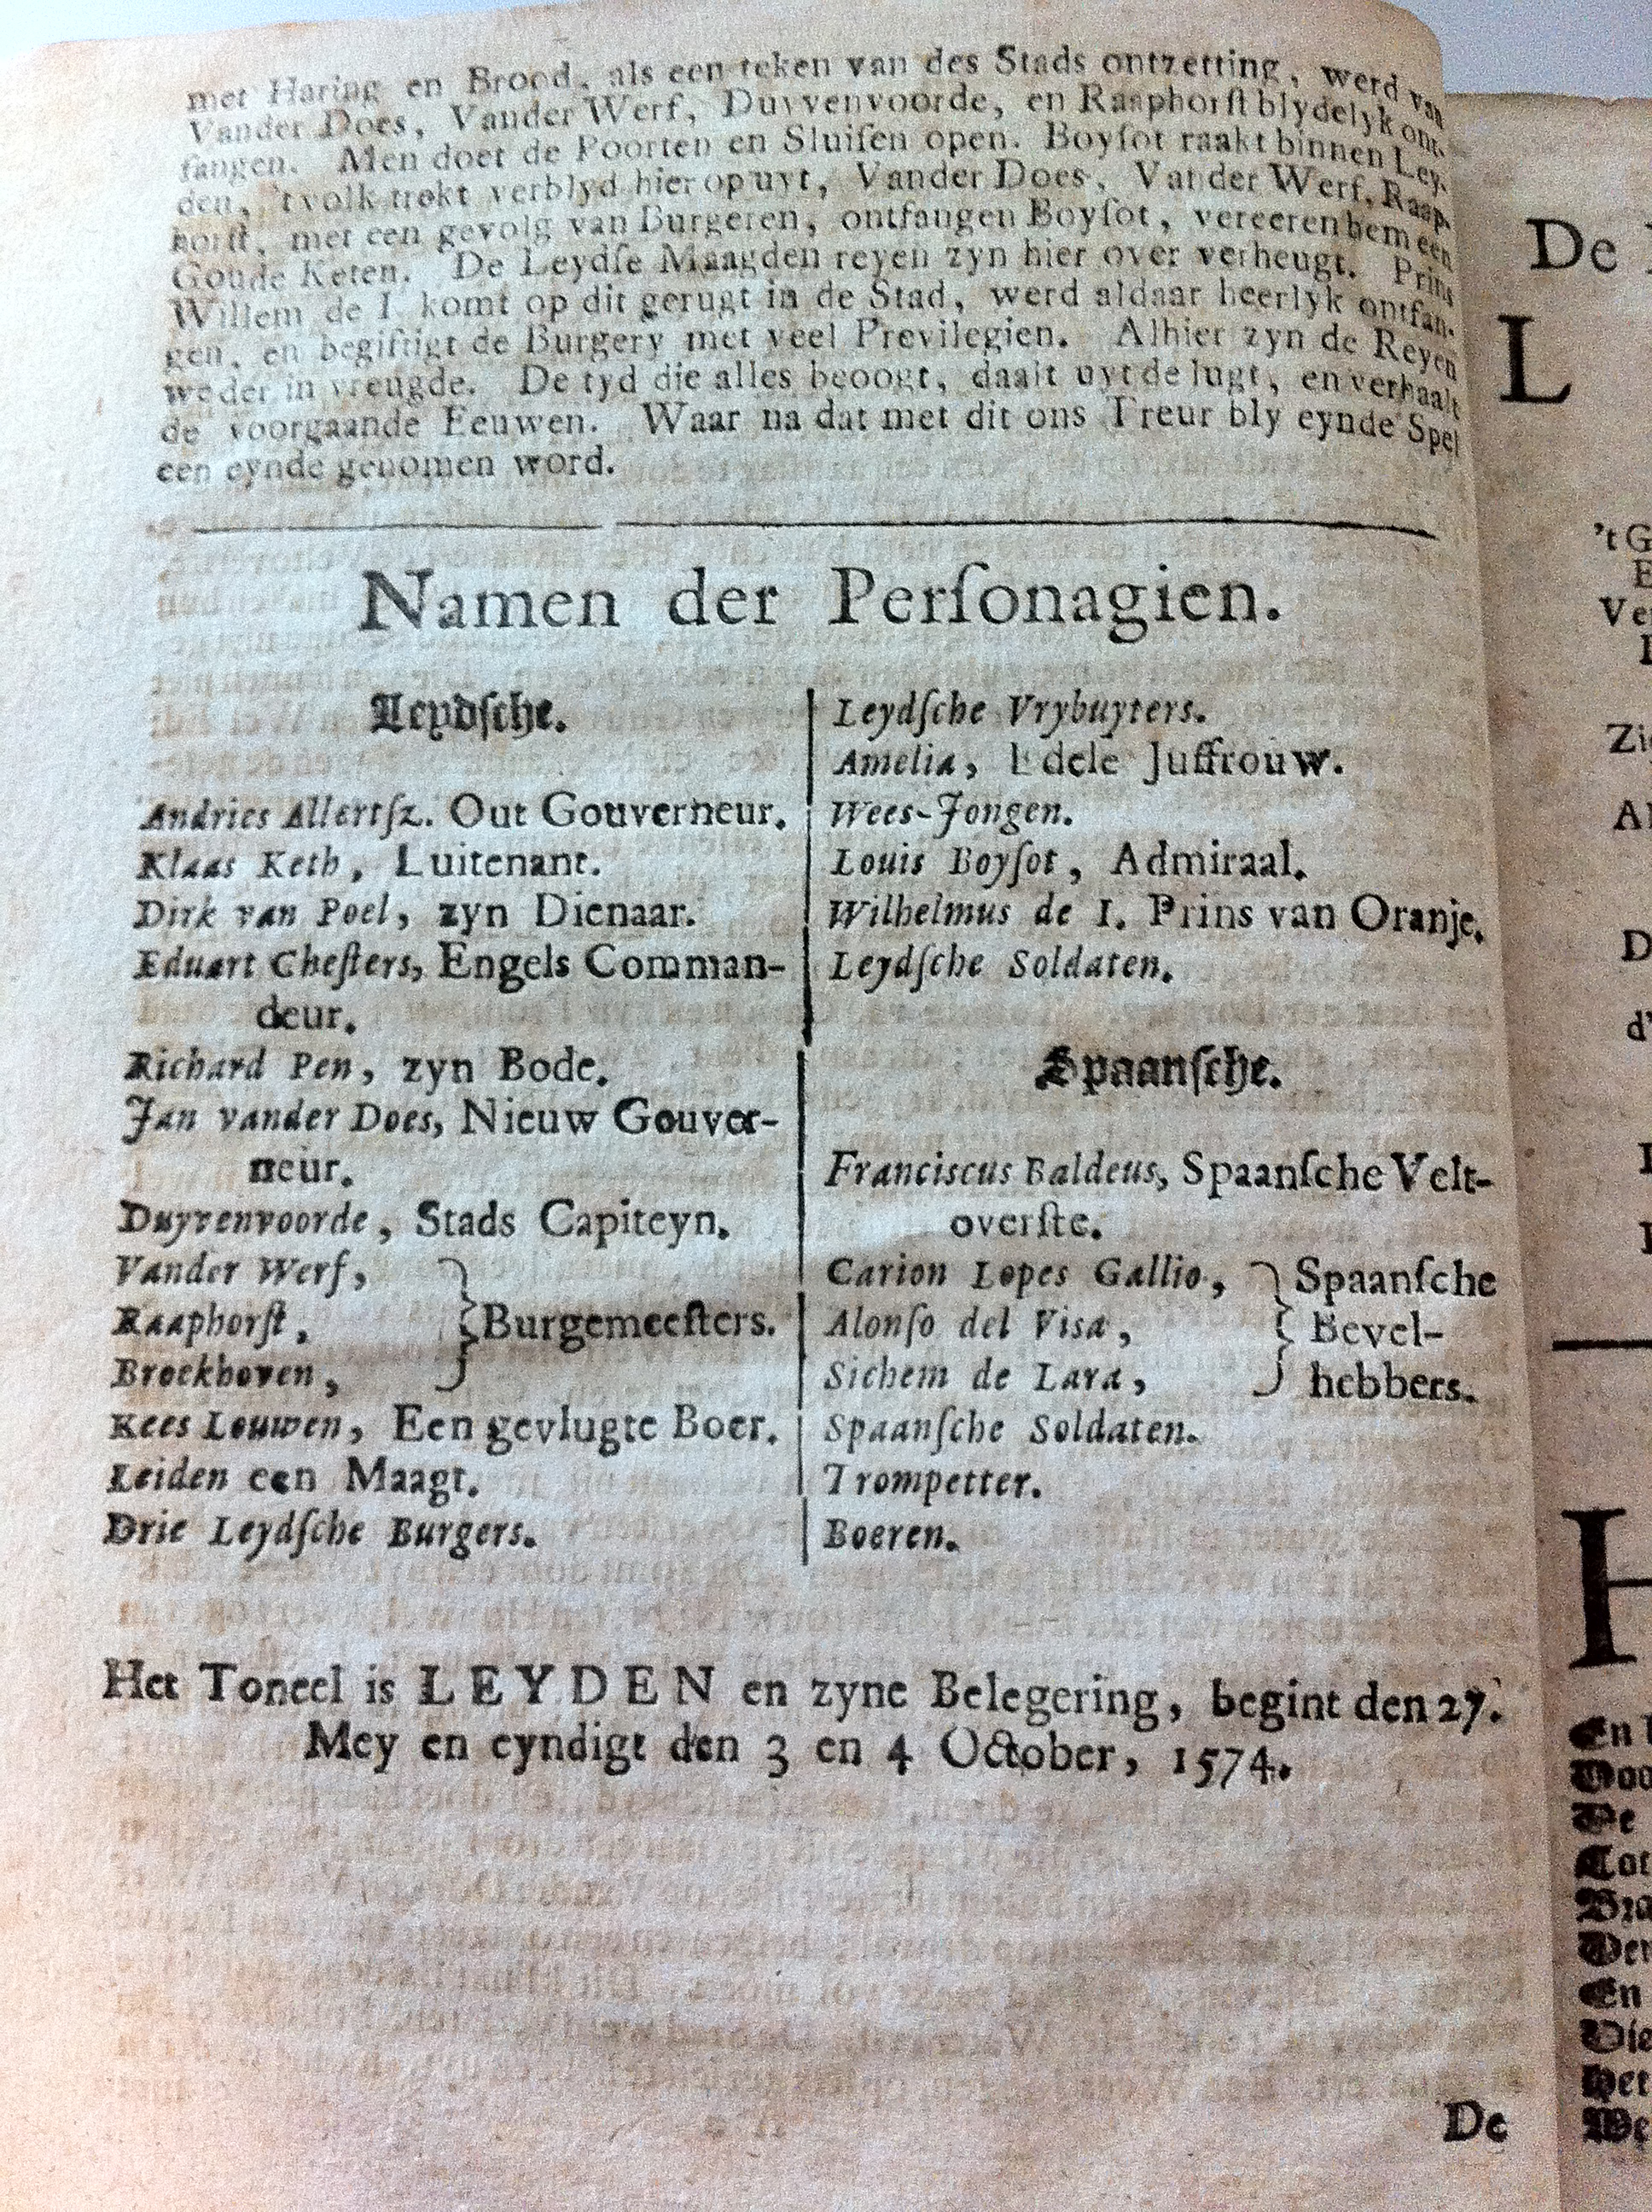 met Haring en Brood, als een teken van des Stads ontzetting, werd van
Vander Does, Vander Werf, Duyvenvoorde, en Raaphorſt blydelyk ont-
fangen. Men doet de Poorten en Sluiſen open. Boyſot raakt binnen Ley-
den, 't volk trekt verblyd hier op uyt, Vander Does, Vander Werf, Raap-
horſt, met een gevolg van Burgeren, ontfangen Boyſot, vereeren hem een
Goude Keten. De Leydſe Maagden reyen zyn hier over verheugt. Prins
Willem de I. komt op dit gerugt in de Stad, werd aldaar heerlyk ontfan-
gen, en begiftigt de Burgery met veel Previlegien. Alhier zyn de Reyen
weder in vreugde. De tyd die alles beoogt, daalt uyt de lugt, en verhaalt
de voorgaande Eeuwen. Waar na dat met dit ons Treur bly eynde Spel
een eynde genomen word.
Namen der Perſonagien.
Leydſche.
Andries Allertſz. Out Gouverneur.
Klaas Keth, Luitenant.
Dirk van Poel, zyn Dienaar.
Eduart Cheſters, Engels Comman-
deur.
Richard Pen, zyn Bode.
Jan vander Does, Nieuw Gouver-
neur.
Duyvenvoorde, Stads Capiteyn.
Vander Werf,
Raaphorſt, Burgemeeſters.
Broekhoven,
Kees Louwen, Een gevlugte Boer.
Leiden een Maagt.
Drie Leydſche Burgers.
Leydſche Vrybuyters.
Amelia, Edele Juffrouw.
Wees-Jongen.
Louis Boyſot, Admiraal.
Wilhelmus de I. Prins van Oranje.
Leydſche Soldaten.
Spaanſche.
Franciscus Baldeus, Spaanſche Velt-
overſte.
Carion Lopes Gallio, Spaanſche
Alonſo del Visa, Bevel-
Sichem de Lara, hebbers.
Spaanſche Soldaten.
Trompetter.
Boeren.
Het Toneel is LEYDEN en zyne Belegering, begint den 27.
Mey en eyndigt den 3 en 4 October, 1574.
De
De
L
't G
Zi
H
En
De
Tot
Bra
En
Die
Het
We